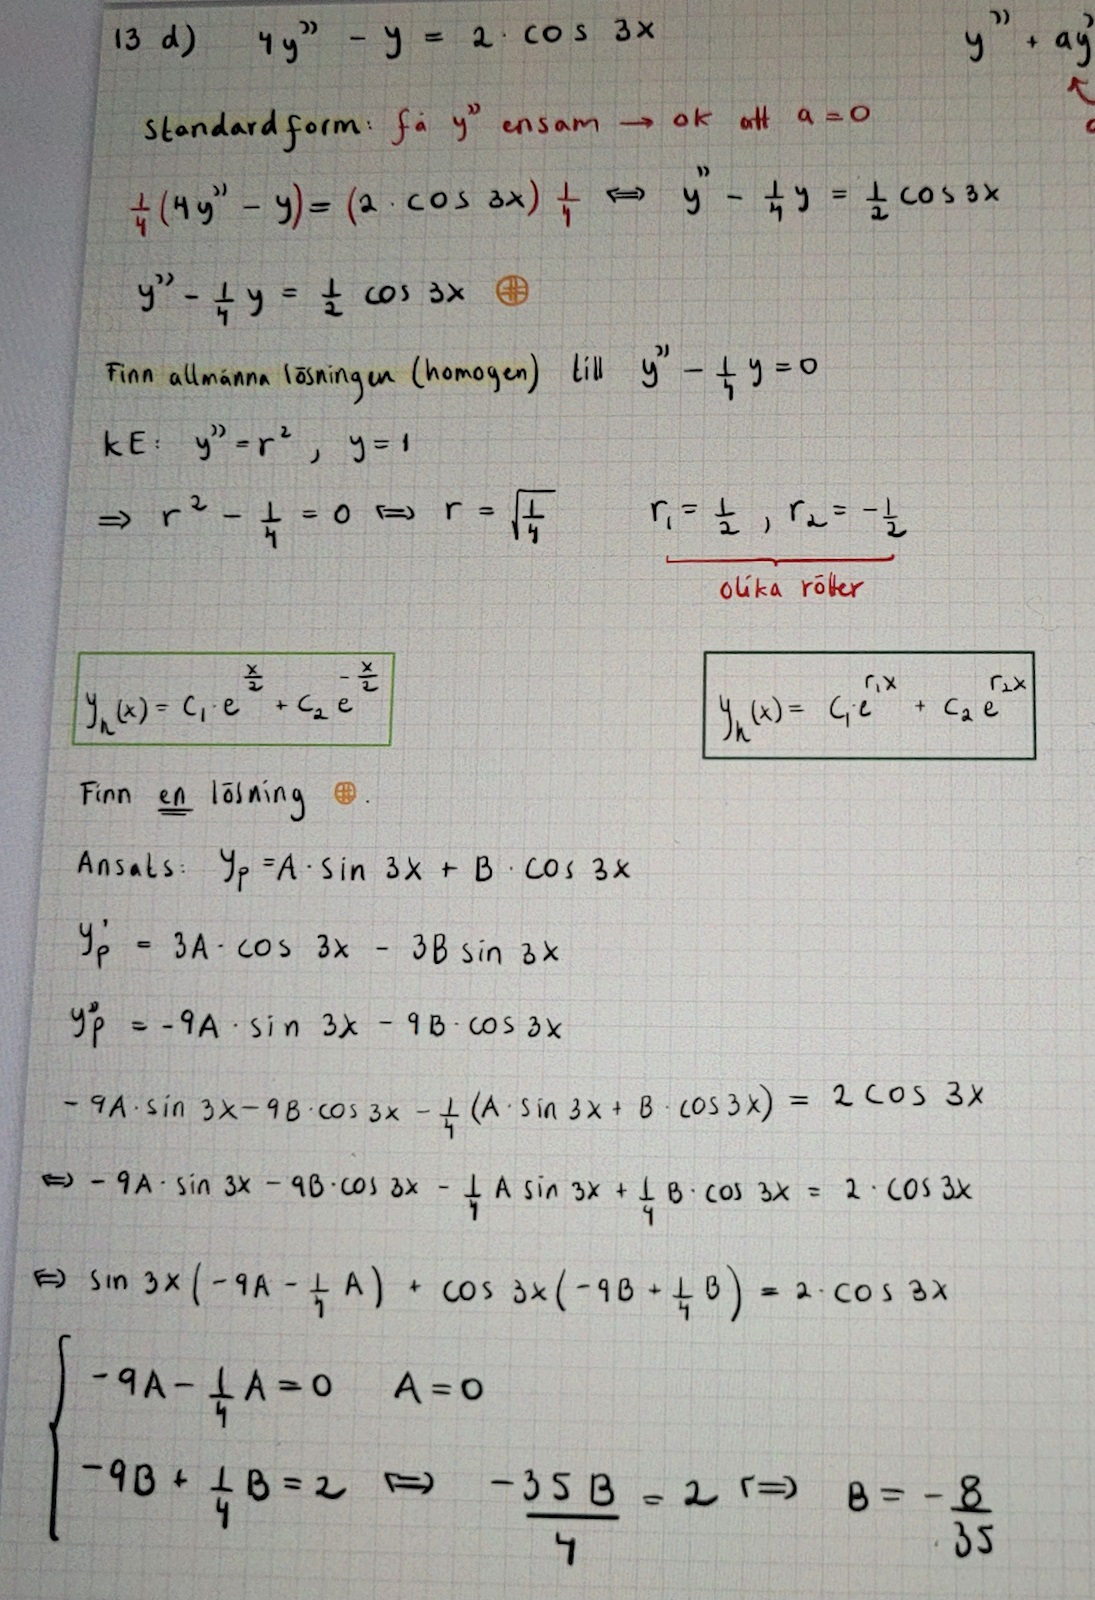 13 d) 4y'' - y = 2 · cos 3x y'' + ay'
standardform: få y'' ensam → ok att a = 0
1/4 (4y'' - y) = (2 · cos 3x) 1/4 ⇔ y'' - 1/4 y = 1/2 cos 3x
y'' - 1/4 y = 1/2 cos 3x ⊕
Finn allmänna lösningen (homogen) till y'' - 1/4 y = 0
kE: y'' = r², y = 1
⇒ r² - 1/4 = 0 ⇔ r = √(1/4) r₁ = 1/2, r₂ = -1/2
olika rötter
yₕ(x) = C₁ · e^(x/2) + C₂ e^(-x/2) yₕ(x) = C₁ · e^(r₁x) + C₂ e^(r₂x)
Finn en lösning ⊕.
Ansats: yₚ = A · sin 3x + B · cos 3x
yₚ' = 3A · cos 3x - 3B sin 3x
yₚ'' = -9A · sin 3x - 9B · cos 3x
-9A · sin 3x - 9B · cos 3x - 1/4 (A · sin 3x + B · cos 3x) = 2 cos 3x
⇔ -9A · sin 3x - 9B · cos 3x - 1/4 A sin 3x + 1/4 B · cos 3x = 2 · cos 3x
⇔ sin 3x (-9A - 1/4 A) + cos 3x (-9B + 1/4 B) = 2 · cos 3x
{ -9A - 1/4 A = 0 A = 0
-9B + 1/4 B = 2 ⇔ -35B/4 = 2 ⇔ B = -8/35